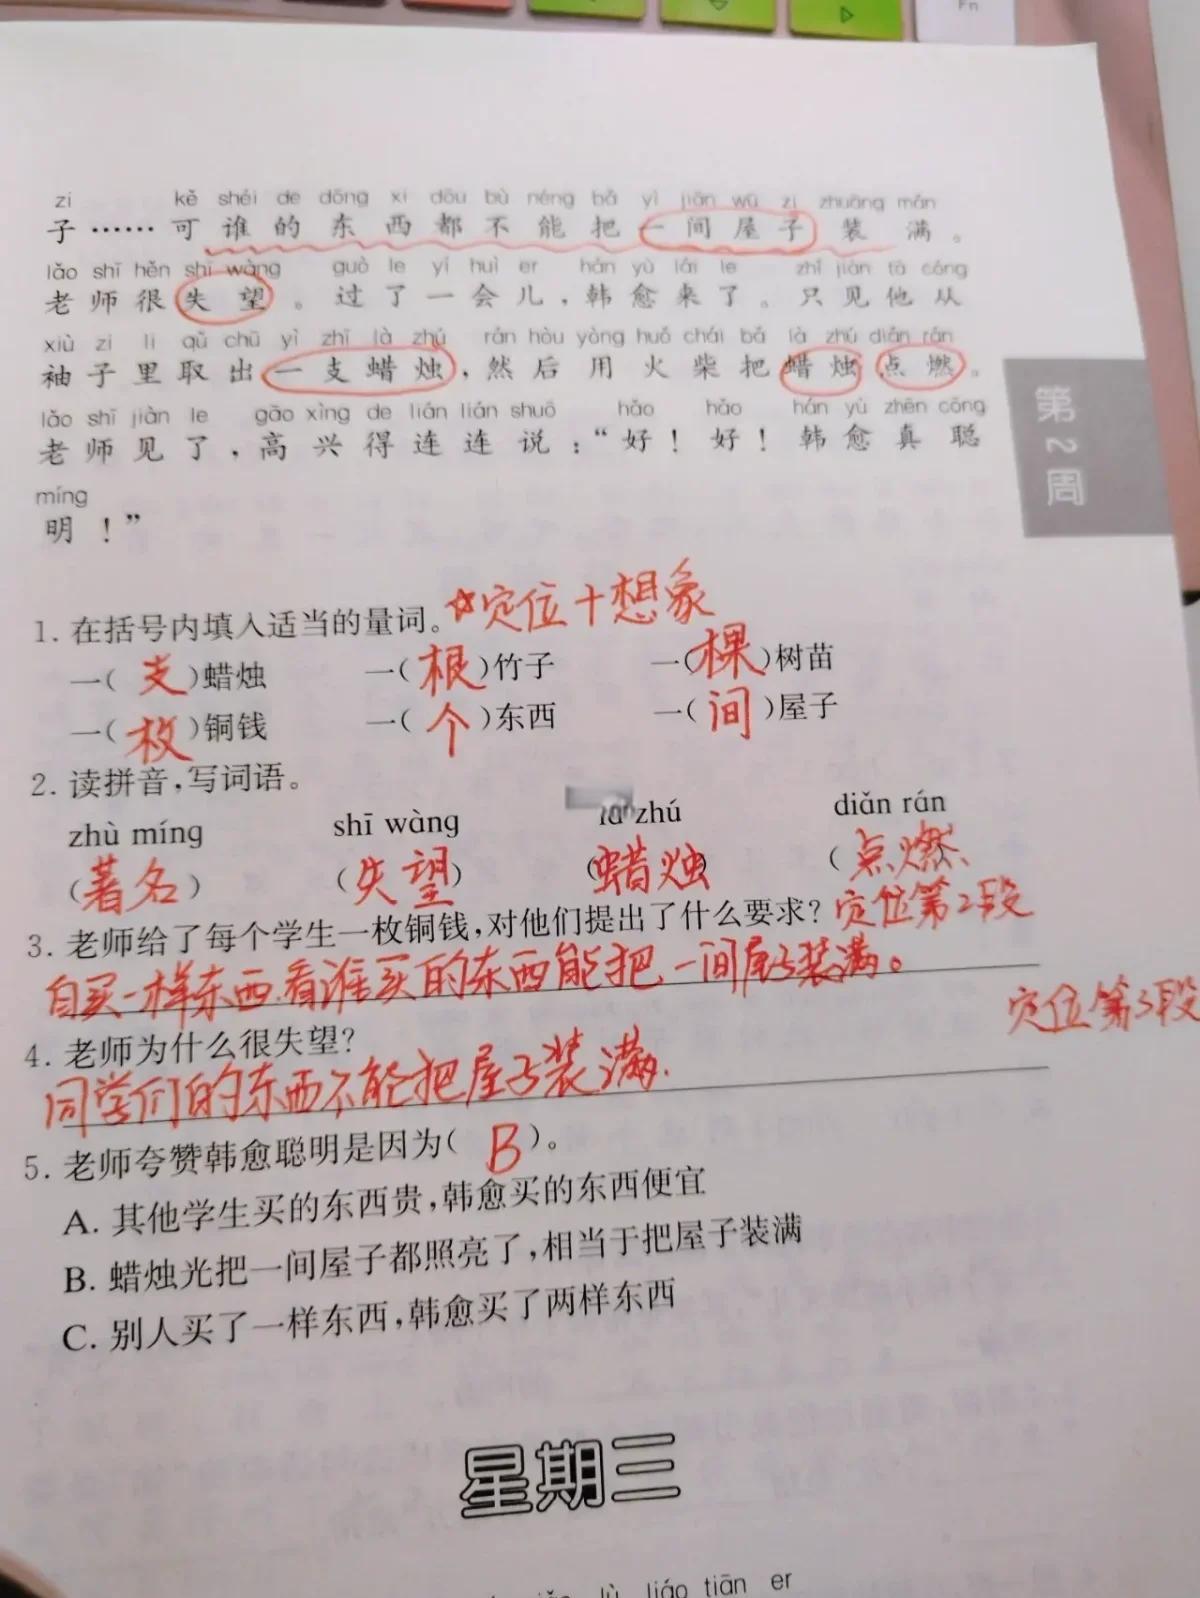 Fn
zi kě shéi de dōng xi dōu bù néng bǎ yì jiān wū zi zhuāng mǎn
子……可谁的东西都不能把一间屋子装满。
lǎo shī hěn shī wàng guò le yí huì er hán yù lái le zhǐ jiàn tā cóng
老师很失望。过了一会儿,韩愈来了。只见他从
xiù zi li qǔ chū yì zhī là zhú rán hòu yòng huǒ chái bǎ là zhú diǎn rán
袖子里取出一支蜡烛,然后用火柴把蜡烛点燃。
lǎo shī jiàn le gāo xìng de lián lián shuō hǎo hǎo hán yù zhēn cōng
老师见了,高兴得连连说:“好!好!韩愈真聪
míng
明!”
第2周
1. 在括号内填入适当的量词。☆定位+想象
一(支)蜡烛 一(根)竹子 一(棵)树苗
一(枚)铜钱 一(个)东西 一(间)屋子
2. 读拼音,写词语。
zhù míng shī wàng zhú diǎn rán
(著名) (失望) (蜡烛) (点燃
3. 老师给了每个学生一枚铜钱,对他们提出了什么要求?定位第2段
自买一样东西.看谁买的东西能把一间屋子装满。
4. 老师为什么很失望? 定位第3段
同学们的东西不能把屋子装满.
5. 老师夸赞韩愈聪明是因为(B)。
A. 其他学生买的东西贵,韩愈买的东西便宜
B. 蜡烛光把一间屋子都照亮了,相当于把屋子装满
C. 别人买了一样东西,韩愈买了两样东西
星期三
lù liáo tiān er